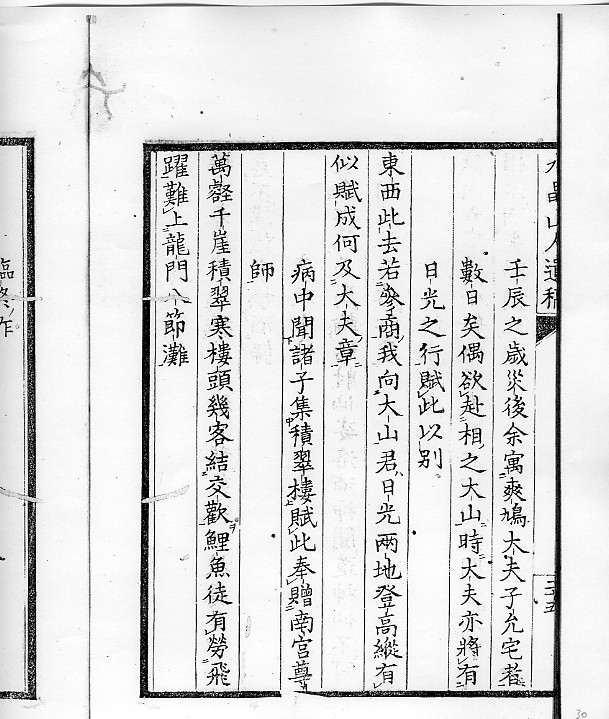 山人遺稿
三十五
壬辰之歲災後余寓爽鳩大夫子允宅者
數日矣偶欲赴相之大山時大夫亦將有
日光之行賦此以別
東西此去若參商我向大山君日光兩地登高縱有
似賦成何及大夫章
病中聞諸子集積翠樓賦此奉贈南宮尊
師
萬壑千崖積翠寒樓頭幾客結交歡鯉魚徒有勞飛
躍難上龍門八節灘
臨終作
30